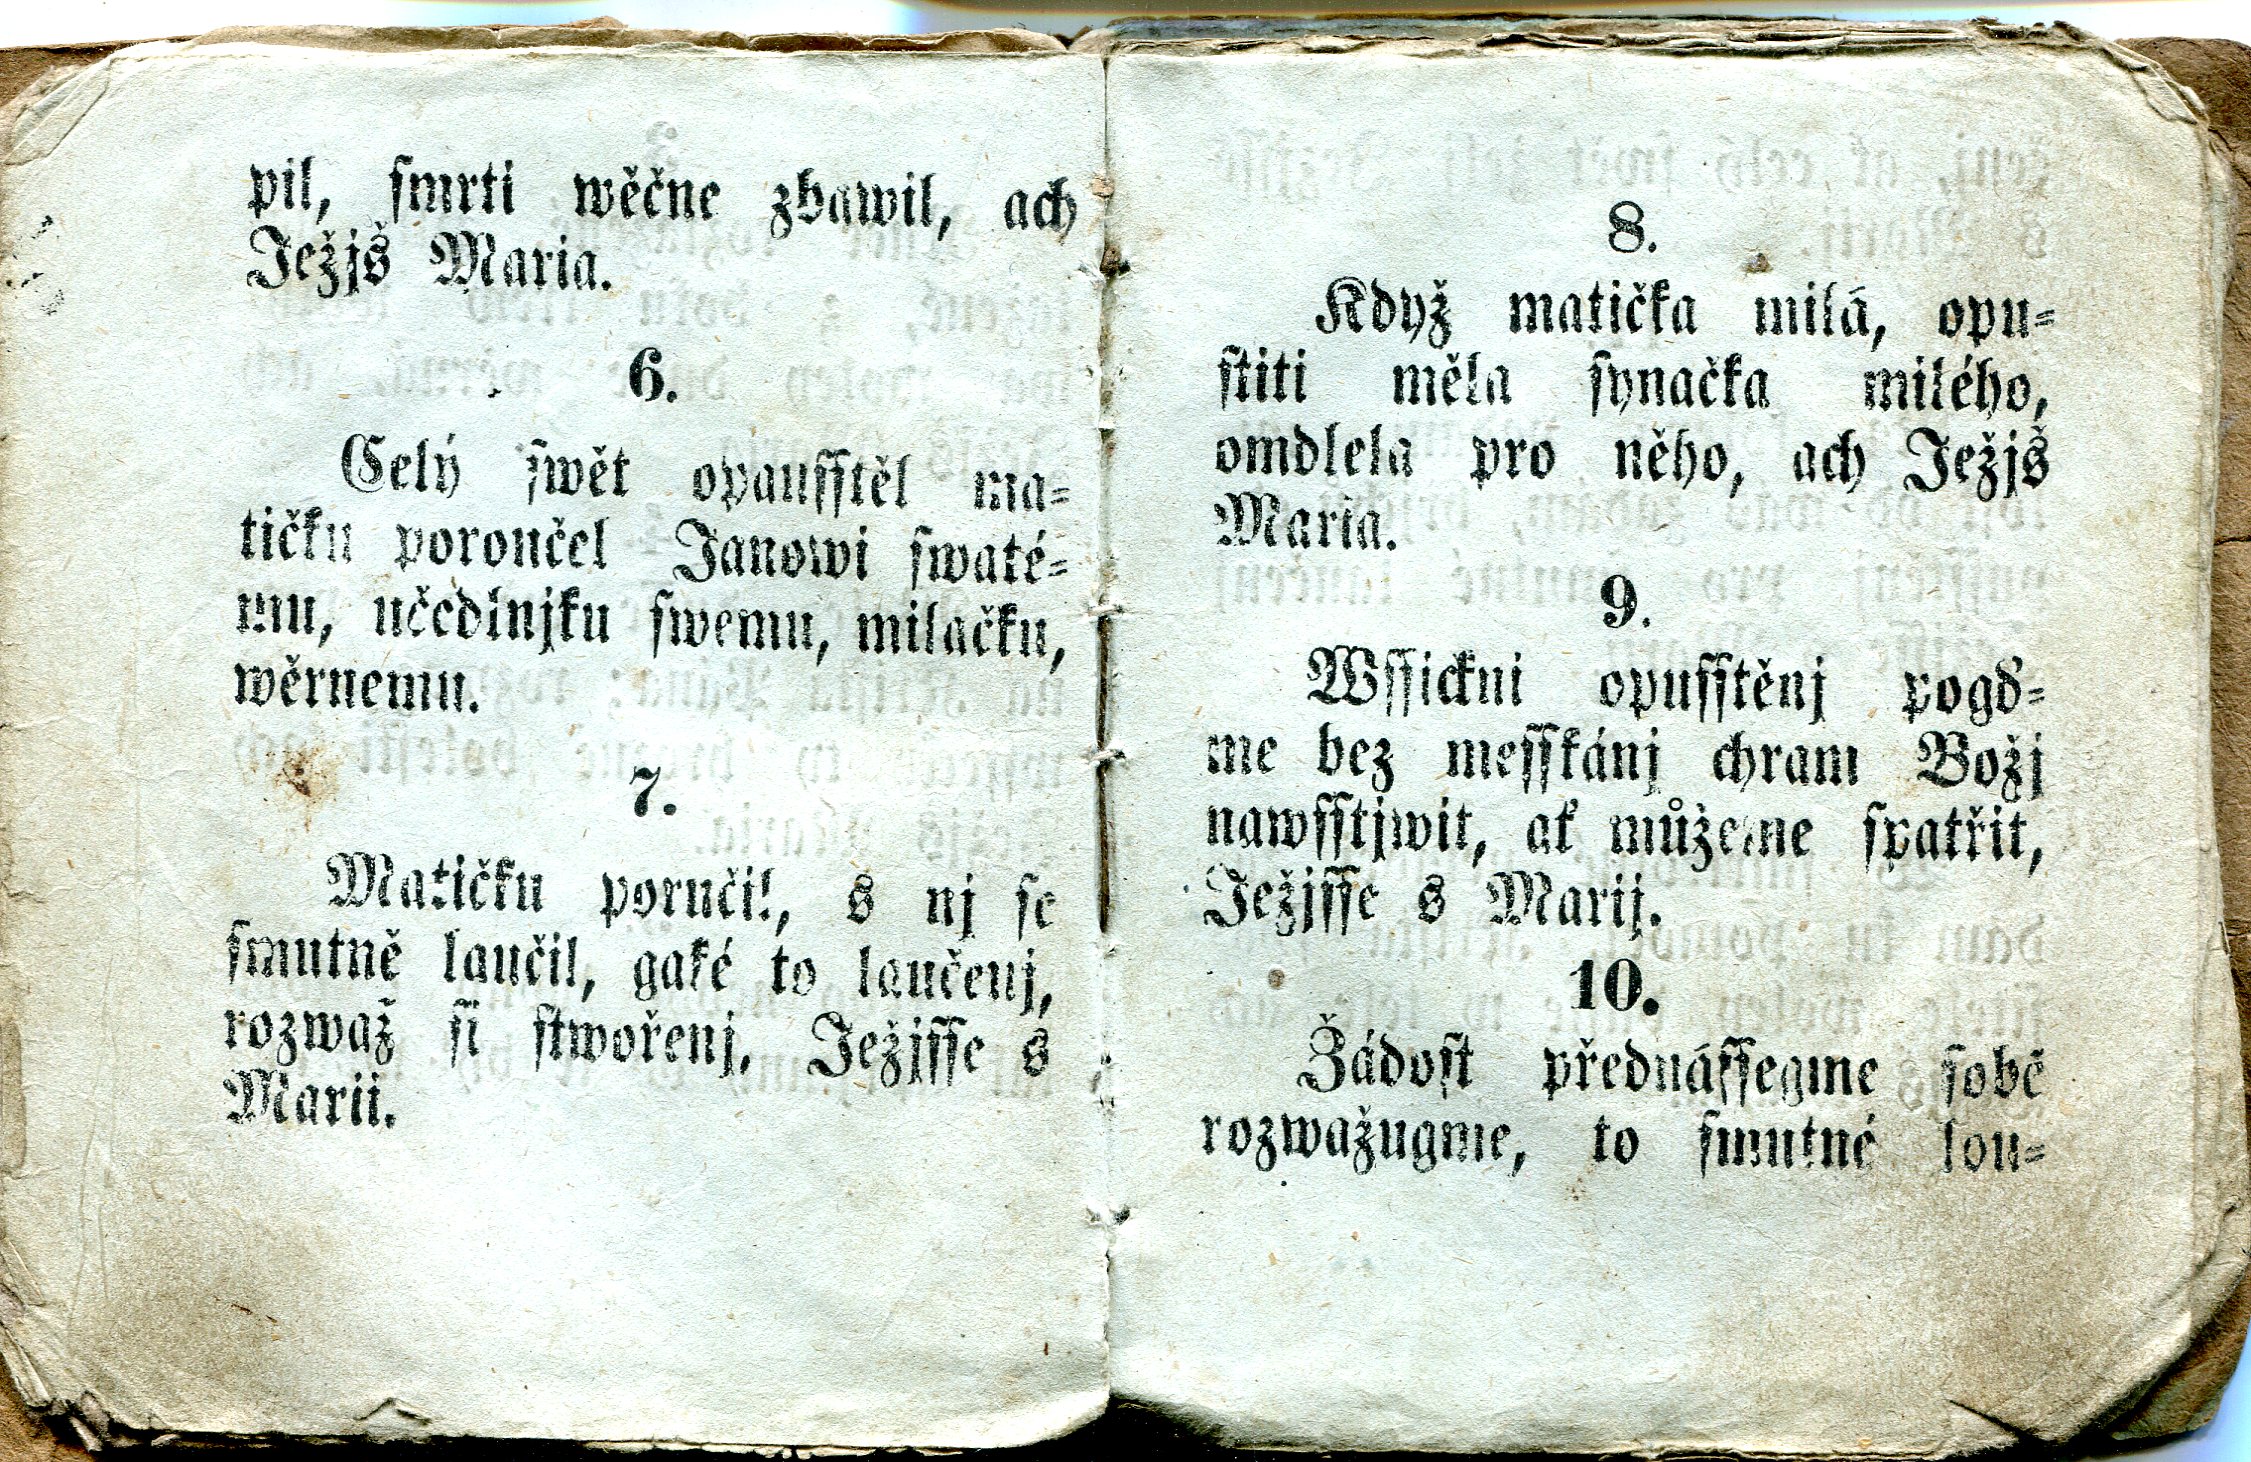 pil, smrti wěčne zbawil, ach
Ježjš Maria.
6.
Celý swět opausstěl ma-
tičku poroučel Janowi swaté-
mu, učedlnjku swemu, milačku,
wěrnemu.
7.
Matičku poručil, s nj se
smutně laučil, gaké to laučenj,
rozwaž si stwořenj, Ježjsse s
Marii.
8.
Když matička milá, opu-
stiti měla synačka milého,
omdlela pro něho, ach Ježjš
Maria.
9.
Wssickni opusstěnj pogď-
me bez messkánj chram Božj
nawsstjwit, ak můžeme spatřit,
Ježjsse s Marij.
10.
Žádost přednássegme sobě
rozwažugme, to smutné lou-